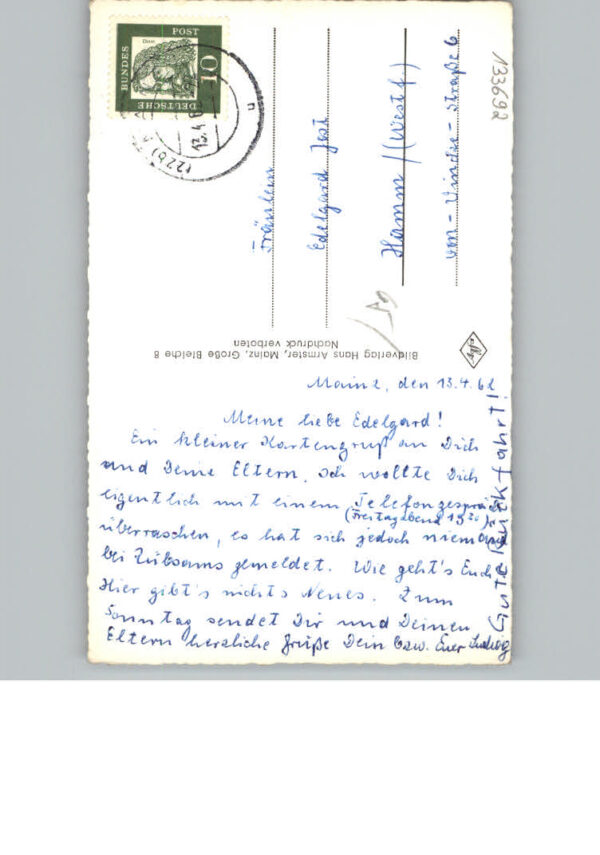 Mainz, den 13.4.62
Meine liebe Edelgard!
Ein kleiner Kartengruß an Dich
und Deine Eltern. Ich wollte Dich
eigentlich mit einem Telefongespräch
(Freitagabend 19 30)
überraschen, es hat sich jedoch niemand
bei gemeldet. Wie geht's Euch
Hier gibt's nichts Neues. Zum
Sonntag sendet Dir und Deinen
Eltern herzliche Grüße Dein bzw. Euer Ludwig
Gute Rückfahrt!
Bildverlag Hans Armster, Mainz, Große Bleiche 8
Nachdruck verboten
Fräulein
Edelgard Jost
Hamm /(Westf.)
von-Vincke-straße 6
133692
DEUTSCHE
BUNDES
POST
10
Dürer
(22b)
13.4.6
n